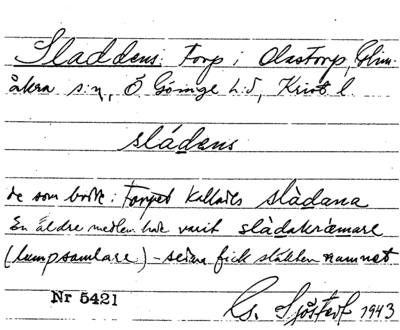 Sladdens: torp i Olastorp, Glim-
åkra s:n, Ö Göinge h:d, Krist l.
slådens
de som bodde i torpet kallades slådana
En äldre medlem hade varit slådakræmare
(lumpsamlare) – sedan fick släkten namnet
Nr 5421
Sjöstedt 1943